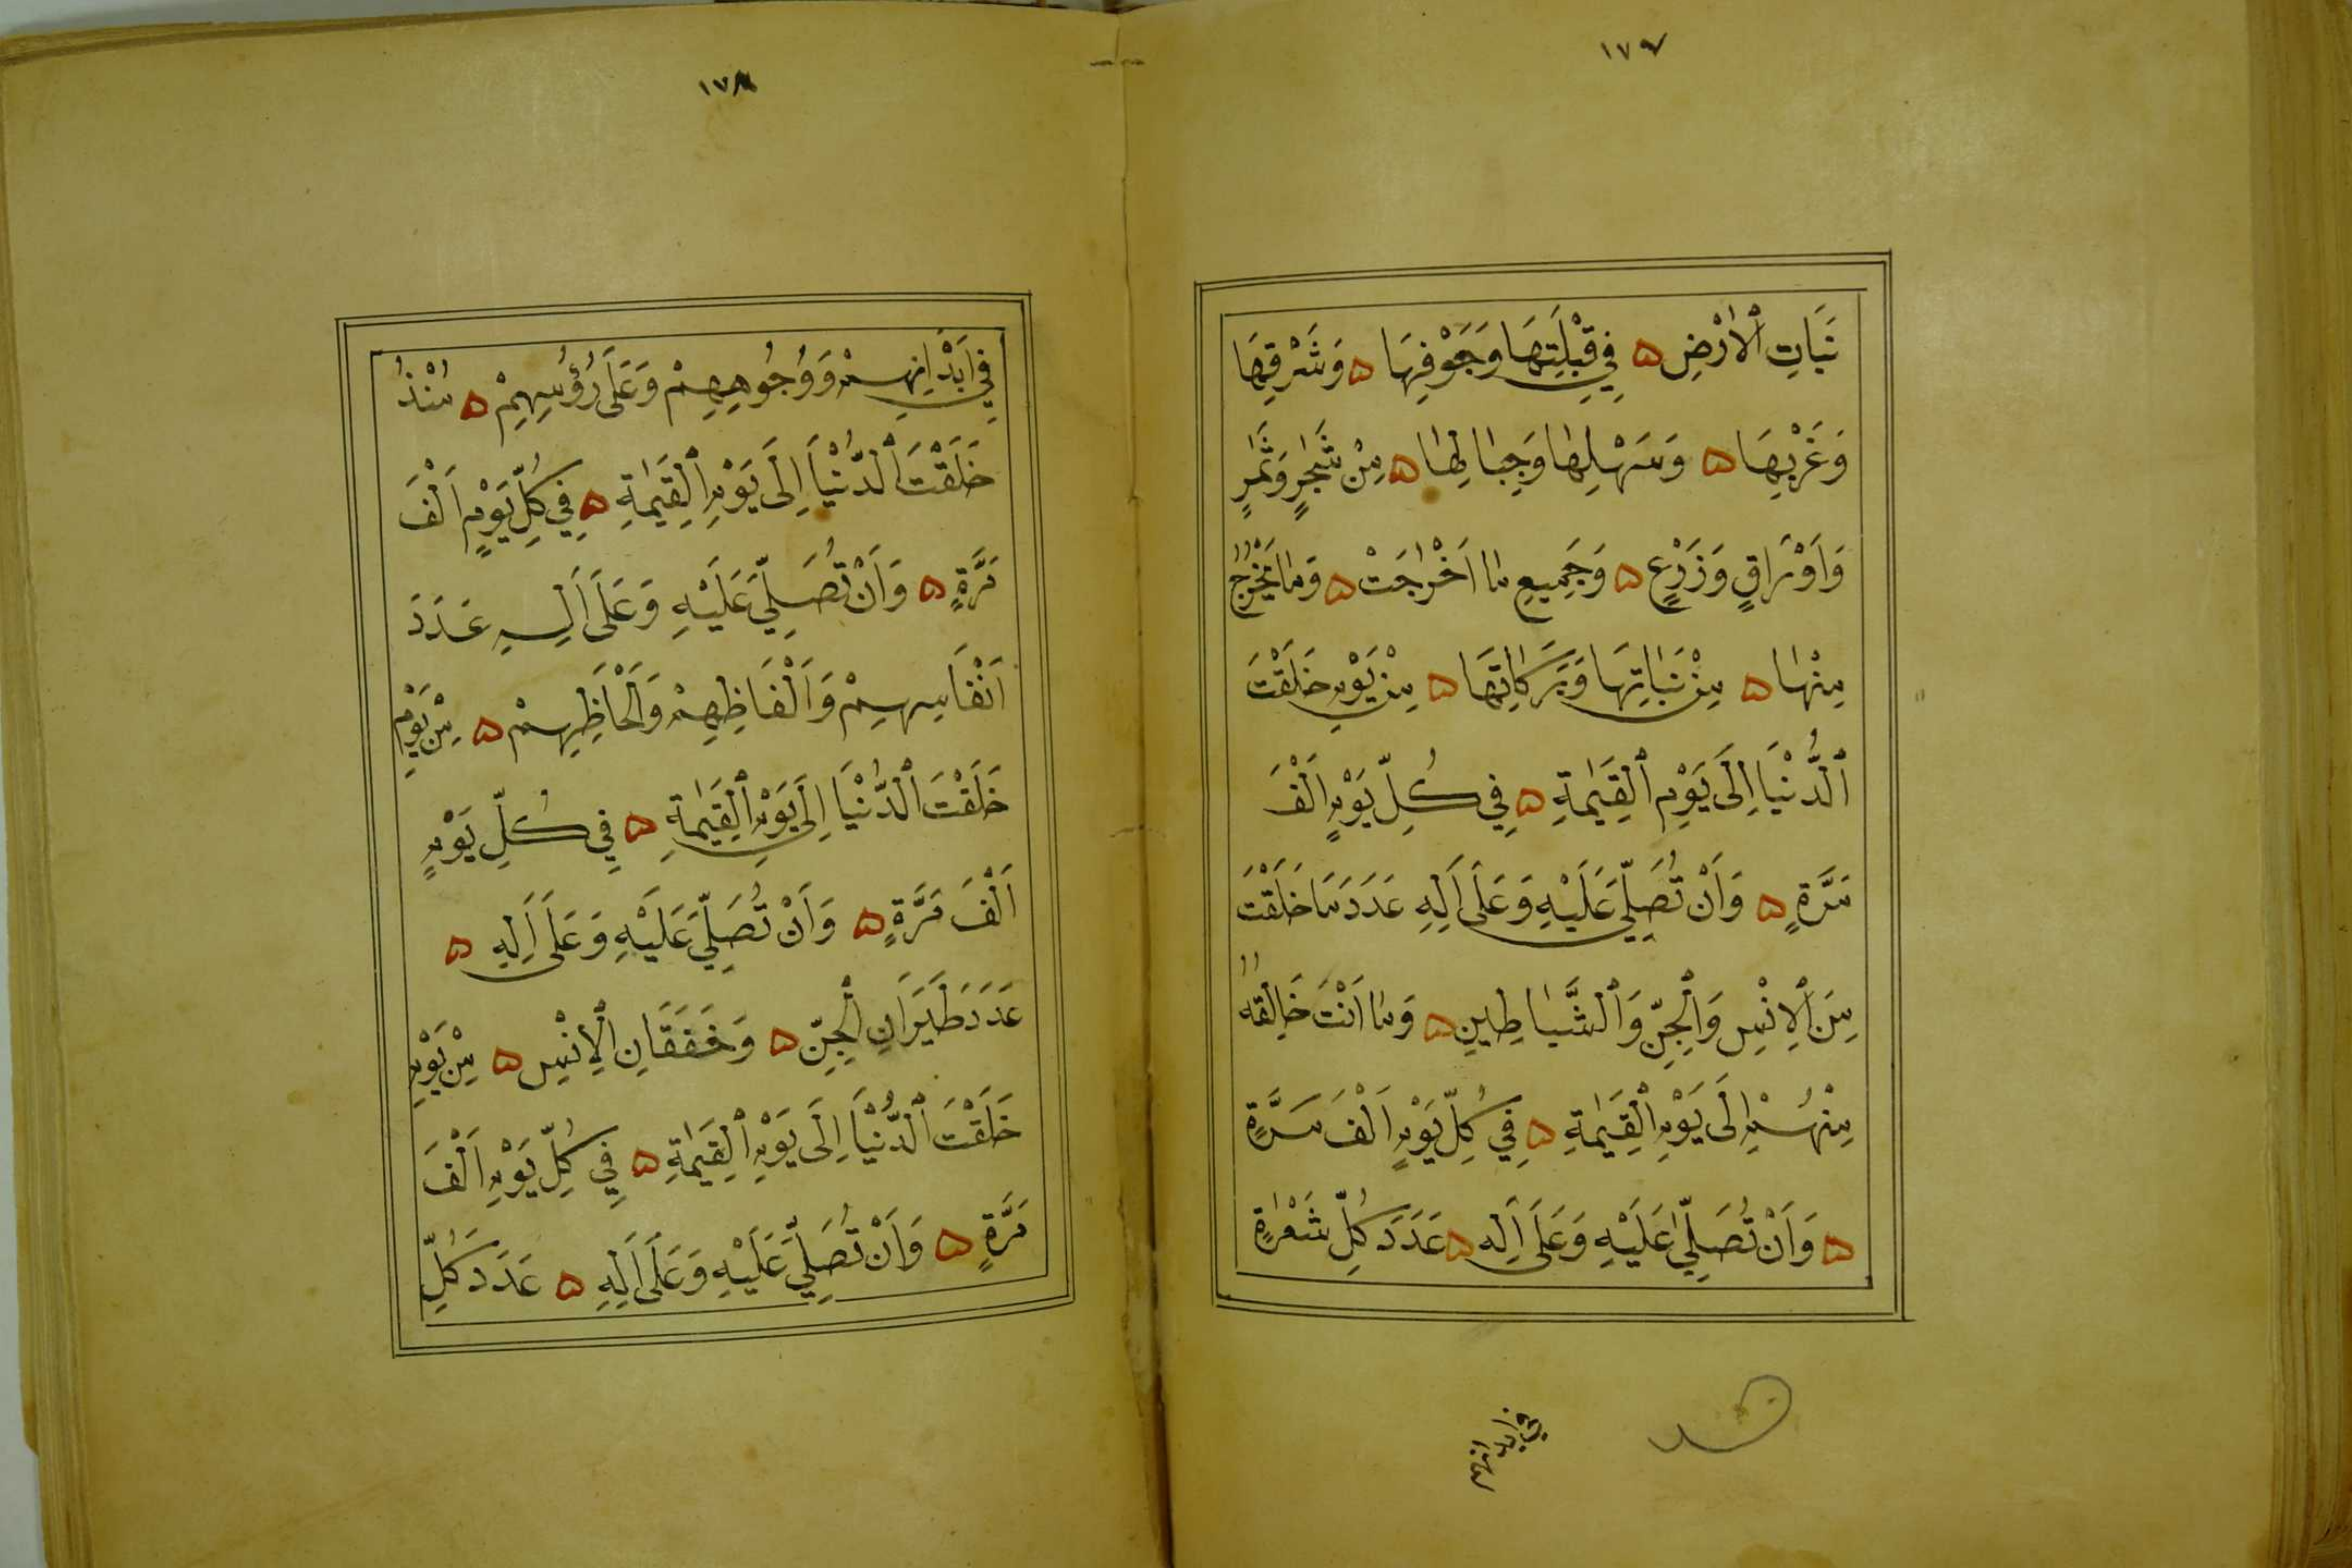 ١٧٧
نَبَاتِ ٱلْاَرْضِ ۵ فِي قِبْلَتِهَا وَجَوْفِهَا ۵ وَشَرْقِهَا
وَغَرْبِهَا ۵ وَسَهْلِهَا وَجِبَالِهَا ۵ مِنْ شَجَرٍ وَثَمَرٍ
وَاَوْرَاقٍ وَزَرْعٍ ۵ وَجَمِيعِ مَا اَخْرَجَتْ ۵ وَمَا يَخْرُجُ
مِنْهَا ۵ مِنْ نَبَاتِهَا وَبَرَكَاتِهَا ۵ مِنْ يَوْمِ خَلَقْتَ
ٱلدُّنْيَا اِلَى يَوْمِ ٱلْقِيٰمَةِ ۵ فِي كُلِّ يَوْمٍ اَلْفَ
مَرَّةٍ ۵ وَاَنْ تُصَلِّيَ عَلَيْهِ وَعَلَى اَلِهِ عَدَدَ مَا خَلَقْتَ
مِنَ ٱلْاِنْسِ وَٱلْجِنِّ وَٱلشَّيَاطِينِ ۵ وَمَا اَنْتَ خَالِقُهُ
مِنْهُمْ اِلَى يَوْمِ ٱلْقِيٰمَةِ ۵ فِي كُلِّ يَوْمٍ اَلْفَ مَرَّةٍ
۵ وَاَنْ تُصَلِّيَ عَلَيْهِ وَعَلَى اَلِهِ ۵ عَدَدَ كُلِّ شَعْرَةٍ
في ابدانهم
١٧٨
فِي اَبْدَانِهِمْ وَوُجُوهِهِمْ وَعَلَى رُؤُسِهِمْ ۵ مُنْذُ
خَلَقْتَ ٱلدُّنْيَا اِلَى يَوْمِ ٱلْقِيٰمَةِ ۵ فِي كُلِّ يَوْمٍ اَلْفَ
مَرَّةٍ ۵ وَاَنْ تُصَلِّيَ عَلَيْهِ وَعَلَى اَلِهِ عَدَدَ
اَنْفَاسِهِمْ وَاَلْفَاظِهِمْ وَاَلْحَاظِهِمْ ۵ مِنْ يَوْمِ
خَلَقْتَ ٱلدُّنْيَا اِلَى يَوْمِ ٱلْقِيٰمَةِ ۵ فِي كُلِّ يَوْمٍ
اَلْفَ مَرَّةٍ ۵ وَاَنْ تُصَلِّيَ عَلَيْهِ وَعَلَى اَلِهِ ۵
عَدَدَ طَيَرَانِ ٱلْجِنِّ ۵ وَخَفَقَانِ ٱلْاِنْسِ ۵ مِنْ يَوْمِ
خَلَقْتَ ٱلدُّنْيَا اِلَى يَوْمِ ٱلْقِيٰمَةِ ۵ فِي كُلِّ يَوْمٍ اَلْفَ
مَرَّةٍ ۵ وَاَنْ تُصَلِّيَ عَلَيْهِ وَعَلَى اَلِهِ ۵ عَدَدَ كُلِّ